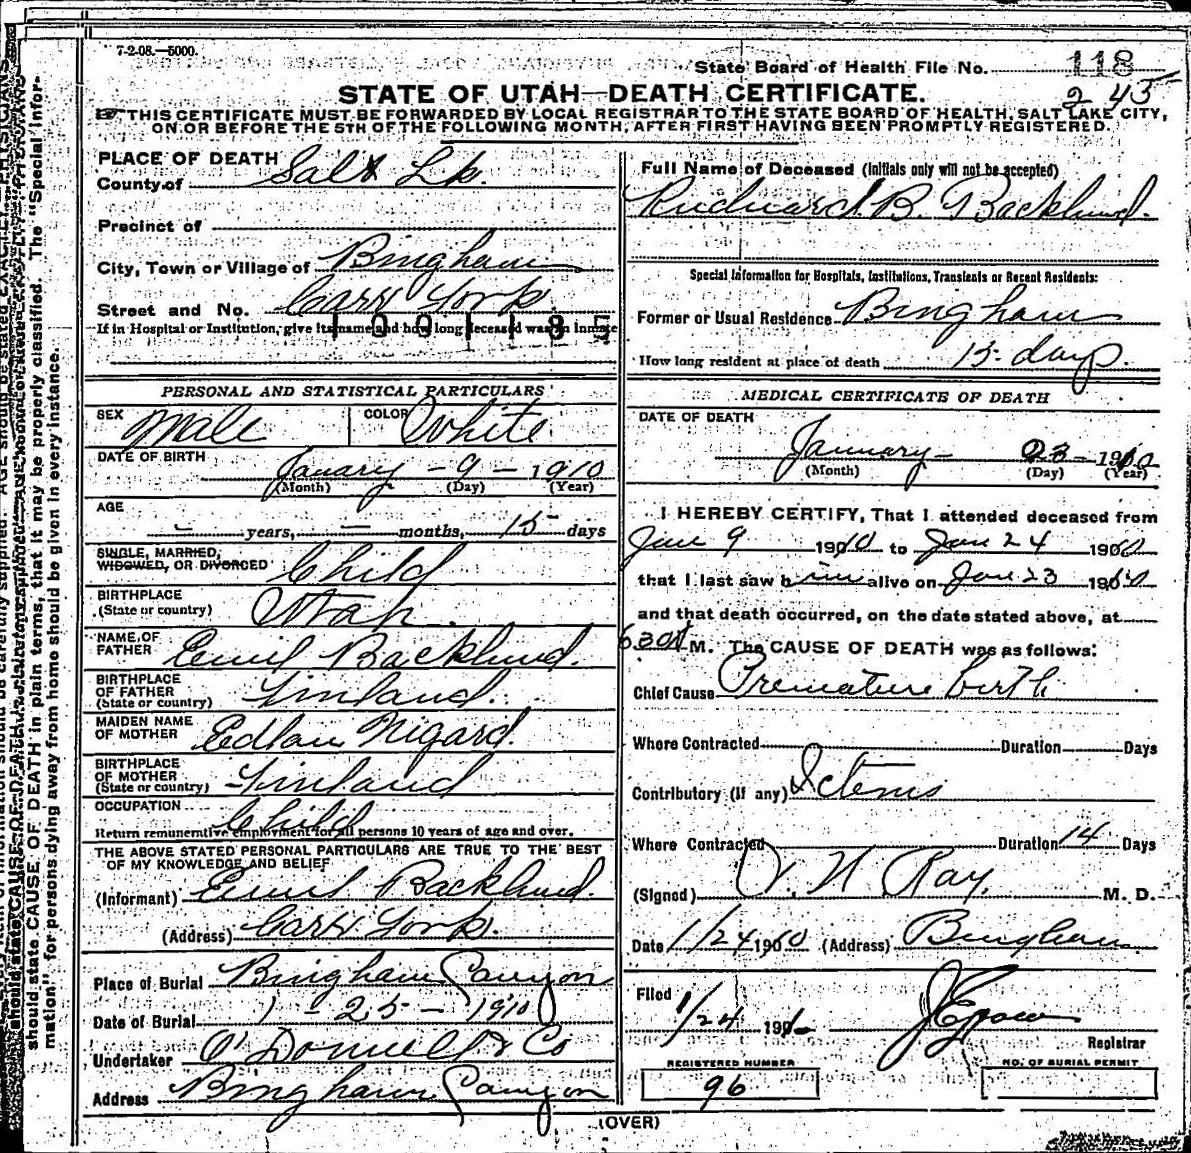 7-2-08.—5000.
State Board of Health File No. 118
2 43
STATE OF UTAH—DEATH CERTIFICATE.
THIS CERTIFICATE MUST BE FORWARDED BY LOCAL REGISTRAR TO THE STATE BOARD OF HEALTH, SALT LAKE CITY,
ON OR BEFORE THE 5TH OF THE FOLLOWING MONTH, AFTER FIRST HAVING BEEN PROMPTLY REGISTERED.
PLACE OF DEATH
County of Salt Lk.
Precinct of
City, Town or Village of Bingham
Street and No. Carr Fork
If in Hospital or Institution, give its name and how long deceased was an inmate
PERSONAL AND STATISTICAL PARTICULARS
SEX Male COLOR White
DATE OF BIRTH
January - 9 - 1910
(Month) (Day) (Year)
AGE
— years, — months, 15 days
SINGLE, MARRIED,
WIDOWED, OR DIVORCED Child
BIRTHPLACE
(State or country) Utah.
NAME OF
FATHER Emil Backlund.
BIRTHPLACE
OF FATHER
(State or country) Finland.
MAIDEN NAME
OF MOTHER Edlau Nigard.
BIRTHPLACE
OF MOTHER
(State or country) Finland
OCCUPATION Child
Return remunerative employment for all persons 10 years of age and over.
THE ABOVE STATED PERSONAL PARTICULARS ARE TRUE TO THE BEST
OF MY KNOWLEDGE AND BELIEF
(Informant) Emil Backlund.
(Address) Carr Fork.
Place of Burial Bingham Canyon
Date of Burial 1 - 25 - 1910
Undertaker O'Donnell & Co
Address Bingham Canyon
Full Name of Deceased (Initials only will not be accepted)
Richard B. Backlund.
Special Information for Hospitals, Institutions, Transients or Recent Residents:
Former or Usual Residence Bingham
How long resident at place of death 15 days.
MEDICAL CERTIFICATE OF DEATH
DATE OF DEATH
January - 23 - 1910
(Month) (Day) (Year)
I HEREBY CERTIFY, That I attended deceased from
Jan 9 1910 to Jan 24 1910
that I last saw him alive on Jan 23 1910
and that death occurred, on the date stated above, at
630 M. The CAUSE OF DEATH was as follows:
Chief Cause Premature birth
Where Contracted Duration Days
Contributory (if any) Icterus
Where Contracted Duration 14 Days
(Signed) Ray, M. D.
Date 1/24 1910 (Address) Bingham
Filed 1/24 191
Registrar
REGISTERED NUMBER
96
NO. OF BURIAL PERMIT
(OVER)
should state CAUSE OF DEATH in plain terms, that it may be properly classified. The "Special Infor-
mation" for persons dying away from home should be given in every instance.